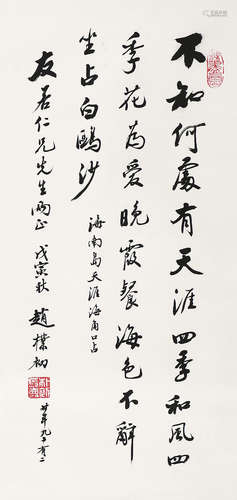 不知何處有天涯四季和風四
季花為愛晚霞餐海色不辭
坐占白鷗沙
海南島天涯海角口占
友若仁兄先生兩正
戊寅秋
趙樸初
年九十有二